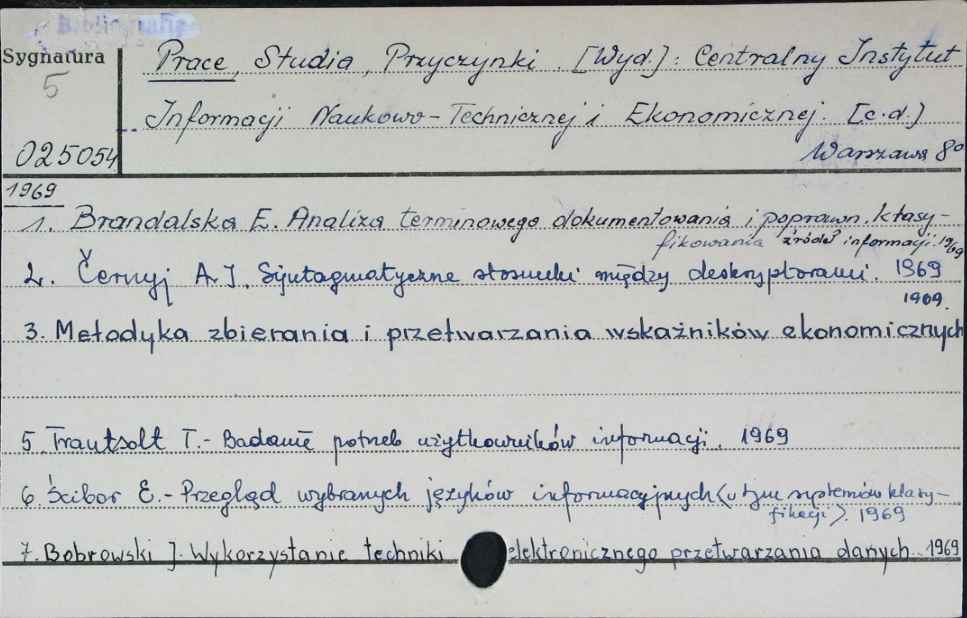 Bibliografie
Sygnatura
5
025054
Prace, Studia, Przyczynki. [Wyd.]: Centralny Instytut
Informacji Naukowo-Technicznej i Ekonomicznej. [c.d.]
Warszawa 8°
1969
1. Brandalska E. Analiza terminowego dokumentowania i poprawn. klasy-
fikowania źródeł informacji. 1969
2. Černyj A.I. Syntagmatyczne stosunki między deskryptorami. 1969
1969.
3. Metodyka zbierania i przetwarzania wskaźników ekonomicznych
5. Trautsolt T. - Badanie potrzeb użytkowników informacji. 1969
6. Ścibor E. - Przegląd wybranych języków informacyjnych (w tym systemów klasy-
fikacji). 1969
7. Bobrowski J. Wykorzystanie techniki elektronicznego przetwarzania danych 1969